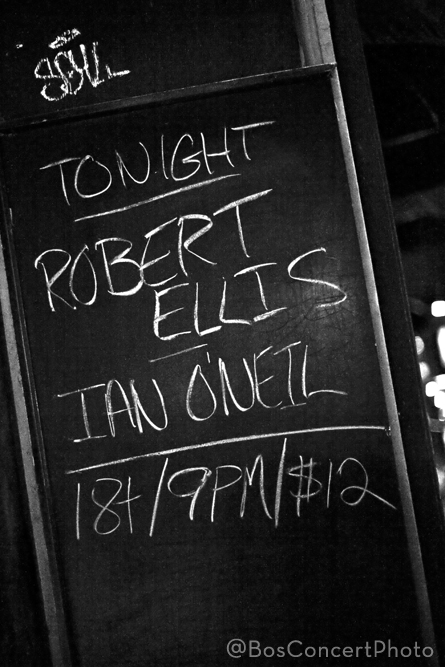 TONIGHT
ROBERT
ELLIS
IAN O'NEIL
18+/9PM/$12
@BosConcertPhoto